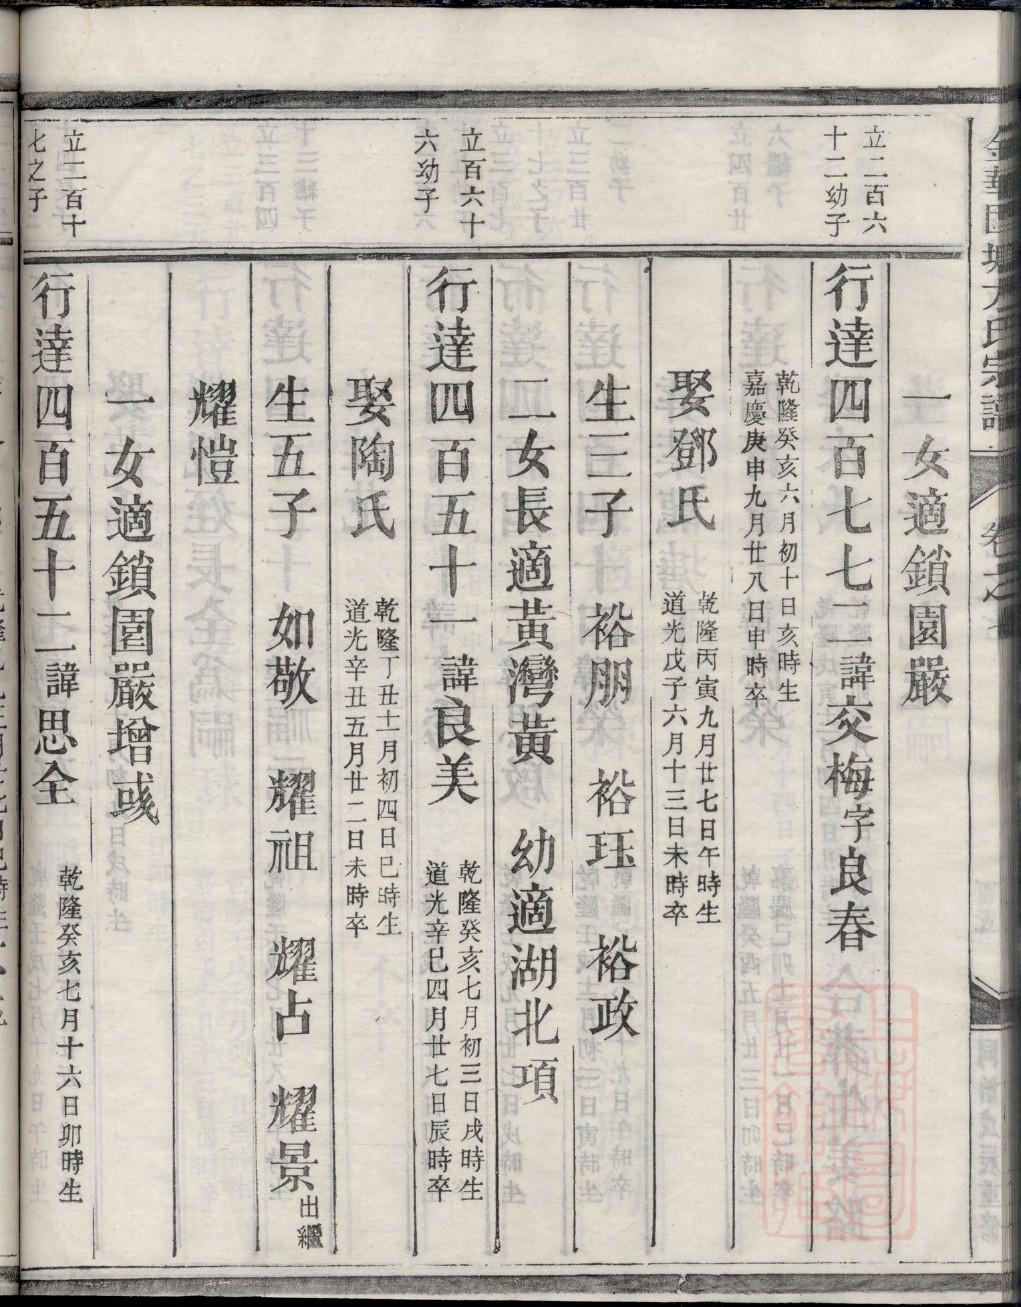 金華國塘方氏宗譜
卷之
一女適鎖園嚴
立二百六
十二幼子
行達四百七七二諱交梅字良春
乾隆癸亥六月初十日亥時生
嘉慶庚申九月廿八日申時卒
娶鄧氏
乾隆丙寅九月廿七日午時生
道光戊子六月十三日未時卒
生三子 裕朋 裕珏 裕政
二女長適黃灣黃 幼適湖北項
立百六十
六幼子
行達四百五十一諱良美
乾隆癸亥七月初三日戌時生
道光辛巳四月廿七日辰時卒
娶陶氏
乾隆丁丑十一月初四日巳時生
道光辛丑五月廿二日未時卒
生五子 如敬 耀祖 耀占 耀景出繼
耀愷
一女適鎖園嚴增彧
立二百十
七之子
行達四百五十二諱思全
乾隆癸亥七月十六日卯時生